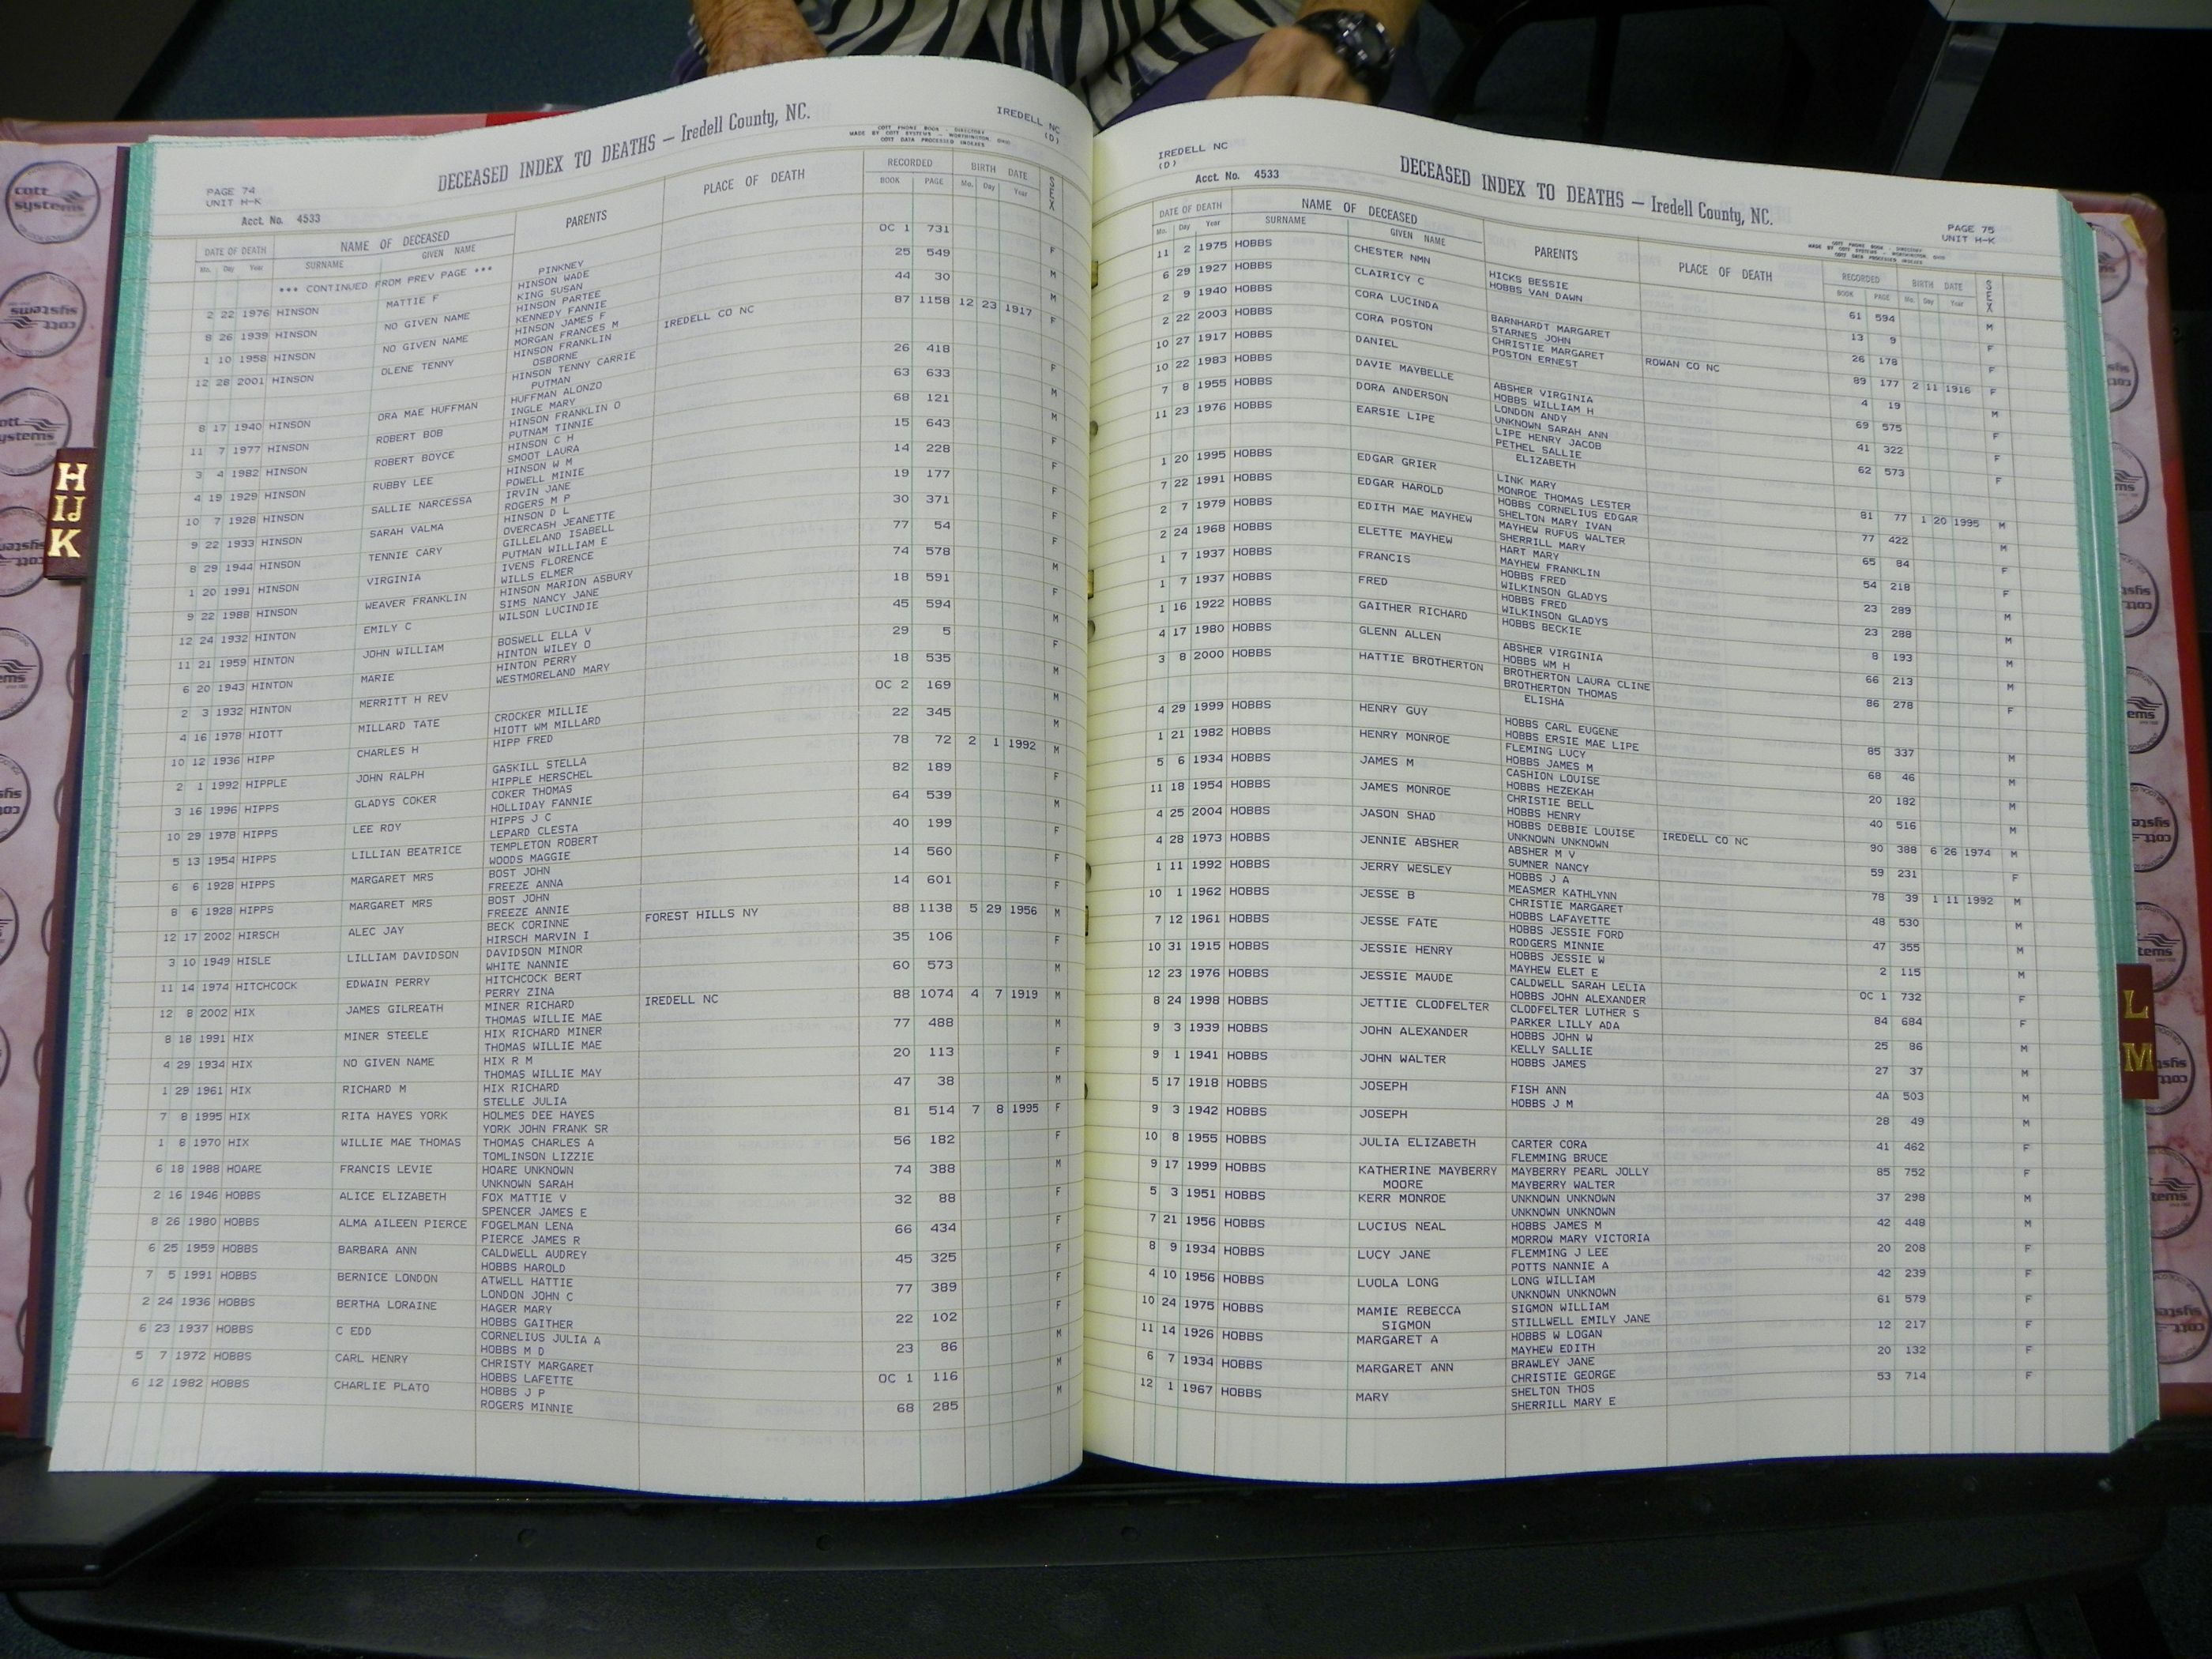 IREDELL NC
(D)
DECEASED INDEX TO DEATHS — Iredell County, NC.
COTT PHONE BOOK - DIRECTORY
MADE BY COTT SYSTEMS - WORTHINGTON, OHIO
COTT DATA PROCESSED INDEXES
PAGE 74
UNIT H-K
Acct. No. 4533
DATE OF DEATH NAME OF DECEASED PARENTS PLACE OF DEATH RECORDED BIRTH DATE SEX
Mo. Day Year SURNAME GIVEN NAME BOOK PAGE Mo. Day Year
*** CONTINUED FROM PREV PAGE *** PINKNEY
2 22 1976 HINSON MATTIE F HINSON WADE OC 1 731 F
KING SUSAN
8 26 1939 HINSON NO GIVEN NAME HINSON PARTEE 25 549 M
KENNEDY FANNIE
1 10 1958 HINSON NO GIVEN NAME HINSON JAMES F 44 30 M
MORGAN FRANCES M
12 28 2001 HINSON OLENE TENNY HINSON FRANKLIN IREDELL CO NC 87 1158 12 23 1917 F
OSBORNE
HINSON TENNY CARRIE
PUTMAN
8 17 1940 HINSON ORA MAE HUFFMAN HUFFMAN ALONZO 26 418 F
INGLE MARY
11 7 1977 HINSON ROBERT BOB HINSON FRANKLIN O 63 633 M
PUTNAM TINNIE
3 4 1982 HINSON ROBERT BOYCE HINSON C H 68 121 M
SMOOT LAURA
4 19 1929 HINSON RUBBY LEE HINSON W M 15 643 F
POWELL MINIE
10 7 1928 HINSON SALLIE NARCESSA IRVIN JANE 14 228 F
ROGERS M P
9 22 1933 HINSON SARAH VALMA HINSON D L 19 177 F
OVERCASH JEANETTE
8 29 1944 HINSON TENNIE CARY GILLELAND ISABELL 30 371 F
PUTMAN WILLIAM E
1 20 1991 HINSON VIRGINIA IVENS FLORENCE 77 54 F
WILLS ELMER
9 22 1988 HINSON WEAVER FRANKLIN HINSON MARION ASBURY 74 578 M
SIMS NANCY JANE
12 24 1932 HINTON EMILY C WILSON LUCINDIE 18 591 F
11 21 1959 HINTON JOHN WILLIAM BOSWELL ELLA V 45 594 M
HINTON WILEY O
6 20 1943 HINTON MARIE HINTON PERRY 29 5 F
WESTMORELAND MARY
2 3 1932 HINTON MERRITT H REV 18 535 M
4 16 1978 HIOTT MILLARD TATE CROCKER MILLIE OC 2 169 M
HIOTT WM MILLARD
10 12 1936 HIPP CHARLES H HIPP FRED 22 345 M
2 1 1992 HIPPLE JOHN RALPH GASKILL STELLA 78 72 2 1 1992 M
HIPPLE HERSCHEL
3 16 1996 HIPPS GLADYS COKER COKER THOMAS 82 189 F
HOLLIDAY FANNIE
10 29 1978 HIPPS LEE ROY HIPPS J C 64 539 M
LEPARD CLESTA
5 13 1954 HIPPS LILLIAN BEATRICE TEMPLETON ROBERT 40 199 F
WOODS MAGGIE
6 6 1928 HIPPS MARGARET MRS BOST JOHN 14 560 F
FREEZE ANNA
8 6 1928 HIPPS MARGARET MRS BOST JOHN 14 601 F
FREEZE ANNIE
12 17 2002 HIRSCH ALEC JAY BECK CORINNE FOREST HILLS NY 88 1138 5 29 1956 M
HIRSCH MARVIN I
3 10 1949 HISLE LILLIAM DAVIDSON DAVIDSON MINOR 35 106 F
WHITE NANNIE
11 14 1974 HITCHCOCK EDWAIN PERRY HITCHCOCK BERT 60 573 M
PERRY ZINA
12 8 2002 HIX JAMES GILREATH MINER RICHARD IREDELL NC 88 1074 4 7 1919 M
THOMAS WILLIE MAE
8 18 1991 HIX MINER STEELE HIX RICHARD MINER 77 488 M
THOMAS WILLIE MAE
4 29 1934 HIX NO GIVEN NAME HIX R M 20 113 F
THOMAS WILLIE MAY
1 29 1961 HIX RICHARD M HIX RICHARD 47 38 M
STELLE JULIA
7 8 1995 HIX RITA HAYES YORK HOLMES DEE HAYES 81 514 7 8 1995 F
YORK JOHN FRANK SR
1 8 1970 HIX WILLIE MAE THOMAS THOMAS CHARLES A 56 182 F
TOMLINSON LIZZIE
6 18 1988 HOARE FRANCIS LEVIE HOARE UNKNOWN 74 388 M
UNKNOWN SARAH
2 16 1946 HOBBS ALICE ELIZABETH FOX MATTIE V 32 88 F
SPENCER JAMES E
8 26 1980 HOBBS ALMA AILEEN PIERCE FOGELMAN LENA 66 434 F
PIERCE JAMES R
6 25 1959 HOBBS BARBARA ANN CALDWELL AUDREY 45 325 F
HOBBS HAROLD
7 5 1991 HOBBS BERNICE LONDON ATWELL HATTIE 77 389 F
LONDON JOHN C
2 24 1936 HOBBS BERTHA LORAINE HAGER MARY 22 102 F
HOBBS GAITHER
6 23 1937 HOBBS C EDD CORNELIUS JULIA A 23 86 M
HOBBS M D
5 7 1972 HOBBS CARL HENRY CHRISTY MARGARET OC 1 116 M
HOBBS LAFETTE
6 12 1982 HOBBS CHARLIE PLATO HOBBS J P 68 285 M
ROGERS MINNIE
IREDELL NC
(D)
Acct. No. 4533
DECEASED INDEX TO DEATHS — Iredell County, NC.
PAGE 75
UNIT H-K
COTT PHONE BOOK - DIRECTORY
MADE BY COTT SYSTEMS - WORTHINGTON, OHIO
COTT DATA PROCESSED INDEXES
DATE OF DEATH NAME OF DECEASED PARENTS PLACE OF DEATH RECORDED BIRTH DATE SEX
Mo. Day Year SURNAME GIVEN NAME BOOK PAGE Mo. Day Year
11 2 1975 HOBBS CHESTER NMN HICKS BESSIE 61 594 M
HOBBS VAN DAWN
6 29 1927 HOBBS CLAIRICY C 13 9 F
2 9 1940 HOBBS CORA LUCINDA BARNHARDT MARGARET 26 178 F
STARNES JOHN
2 22 2003 HOBBS CORA POSTON CHRISTIE MARGARET ROWAN CO NC 89 177 2 11 1916 F
POSTON ERNEST
10 27 1917 HOBBS DANIEL 4 19 M
10 22 1983 HOBBS DAVIE MAYBELLE ABSHER VIRGINIA 69 575 F
HOBBS WILLIAM H
7 8 1955 HOBBS DORA ANDERSON LONDON ANDY 41 322 F
UNKNOWN SARAH ANN
11 23 1976 HOBBS EARSIE LIPE LIPE HENRY JACOB 62 573 F
PETHEL SALLIE
ELIZABETH
1 20 1995 HOBBS EDGAR GRIER LINK MARY 81 77 1 20 1995 M
MONROE THOMAS LESTER
7 22 1991 HOBBS EDGAR HAROLD HOBBS CORNELIUS EDGAR 77 422 M
SHELTON MARY IVAN
2 7 1979 HOBBS EDITH MAE MAYHEW MAYHEW RUFUS WALTER 65 84 F
SHERRILL MARY
2 24 1968 HOBBS ELETTE MAYHEW HART MARY 54 218 F
MAYHEW FRANKLIN
1 7 1937 HOBBS FRANCIS HOBBS FRED 23 289 M
WILKINSON GLADYS
1 7 1937 HOBBS FRED HOBBS FRED 23 288 M
WILKINSON GLADYS
1 16 1922 HOBBS GAITHER RICHARD HOBBS BECKIE 8 193 M
4 17 1980 HOBBS GLENN ALLEN ABSHER VIRGINIA 66 213 M
HOBBS WM H
3 8 2000 HOBBS HATTIE BROTHERTON BROTHERTON LAURA CLINE 86 278 F
BROTHERTON THOMAS
ELISHA
4 29 1999 HOBBS HENRY GUY HOBBS CARL EUGENE 85 337 M
HOBBS ERSIE MAE LIPE
1 21 1982 HOBBS HENRY MONROE FLEMING LUCY 68 46 M
HOBBS JAMES M
5 6 1934 HOBBS JAMES M CASHION LOUISE 20 182 M
HOBBS HEZEKAH
11 18 1954 HOBBS JAMES MONROE CHRISTIE BELL 40 516 M
HOBBS HENRY
4 25 2004 HOBBS JASON SHAD HOBBS DEBBIE LOUISE IREDELL CO NC 90 388 6 26 1974 M
UNKNOWN UNKNOWN
4 28 1973 HOBBS JENNIE ABSHER ABSHER M V 59 231 F
SUMNER NANCY
1 11 1992 HOBBS JERRY WESLEY HOBBS J A 78 39 1 11 1992 M
MEASMER KATHLYNN
10 1 1962 HOBBS JESSE B CHRISTIE MARGARET 48 530 M
HOBBS LAFAYETTE
7 12 1961 HOBBS JESSE FATE HOBBS JESSIE FORD 47 355 M
RODGERS MINNIE
10 31 1915 HOBBS JESSIE HENRY HOBBS JESSIE W 2 115 M
MAYHEW ELET E
12 23 1976 HOBBS JESSIE MAUDE CALDWELL SARAH LELIA OC 1 732 F
HOBBS JOHN ALEXANDER
8 24 1998 HOBBS JETTIE CLODFELTER CLODFELTER LUTHER S 84 684 F
PARKER LILLY ADA
9 3 1939 HOBBS JOHN ALEXANDER HOBBS JOHN W 25 86 M
KELLY SALLIE
9 1 1941 HOBBS JOHN WALTER HOBBS JAMES 27 37 M
5 17 1918 HOBBS JOSEPH FISH ANN 4A 503 M
HOBBS J M
9 3 1942 HOBBS JOSEPH 28 49 M
10 8 1955 HOBBS JULIA ELIZABETH CARTER CORA 41 462 F
FLEMMING BRUCE
9 17 1999 HOBBS KATHERINE MAYBERRY MAYBERRY PEARL JOLLY 85 752 F
MOORE MAYBERRY WALTER
5 3 1951 HOBBS KERR MONROE UNKNOWN UNKNOWN 37 298 M
UNKNOWN UNKNOWN
7 21 1956 HOBBS LUCIUS NEAL HOBBS JAMES M 42 448 M
MORROW MARY VICTORIA
8 9 1934 HOBBS LUCY JANE FLEMMING J LEE 20 208 F
POTTS NANNIE A
4 10 1956 HOBBS LUOLA LONG LONG WILLIAM 42 239 F
UNKNOWN UNKNOWN
10 24 1975 HOBBS MAMIE REBECCA SIGMON WILLIAM 61 579 F
SIGMON STILLWELL EMILY JANE
11 14 1926 HOBBS MARGARET A HOBBS W LOGAN 12 217 F
MAYHEW EDITH
6 7 1934 HOBBS MARGARET ANN BRAWLEY JANE 20 132 F
CHRISTIE GEORGE
12 1 1967 HOBBS MARY SHELTON THOS 53 714 F
SHERRILL MARY E
H
IJ
K
L
M
cott
systems